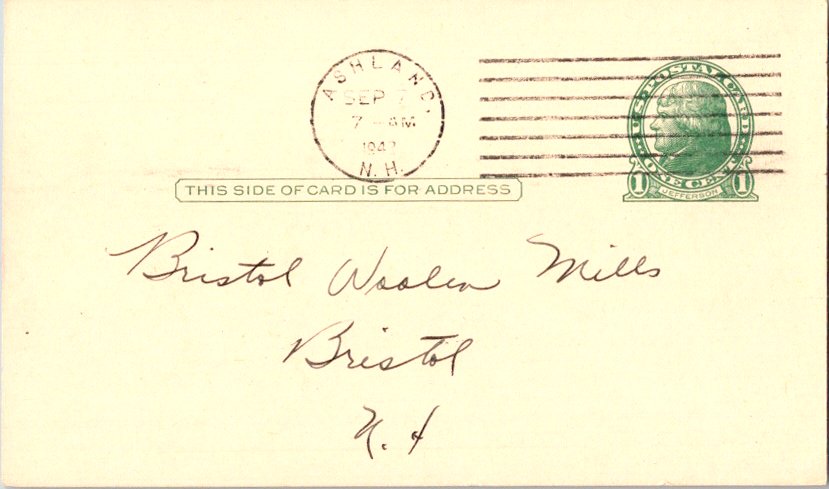 ASHLAND,
SEP 7
7 - AM
1947
N.H.
U.S. POSTAL CARD
ONE CENT
1 JEFFERSON 1
THIS SIDE OF CARD IS FOR ADDRESS
Bristol Woolen Mills
Bristol
N.H